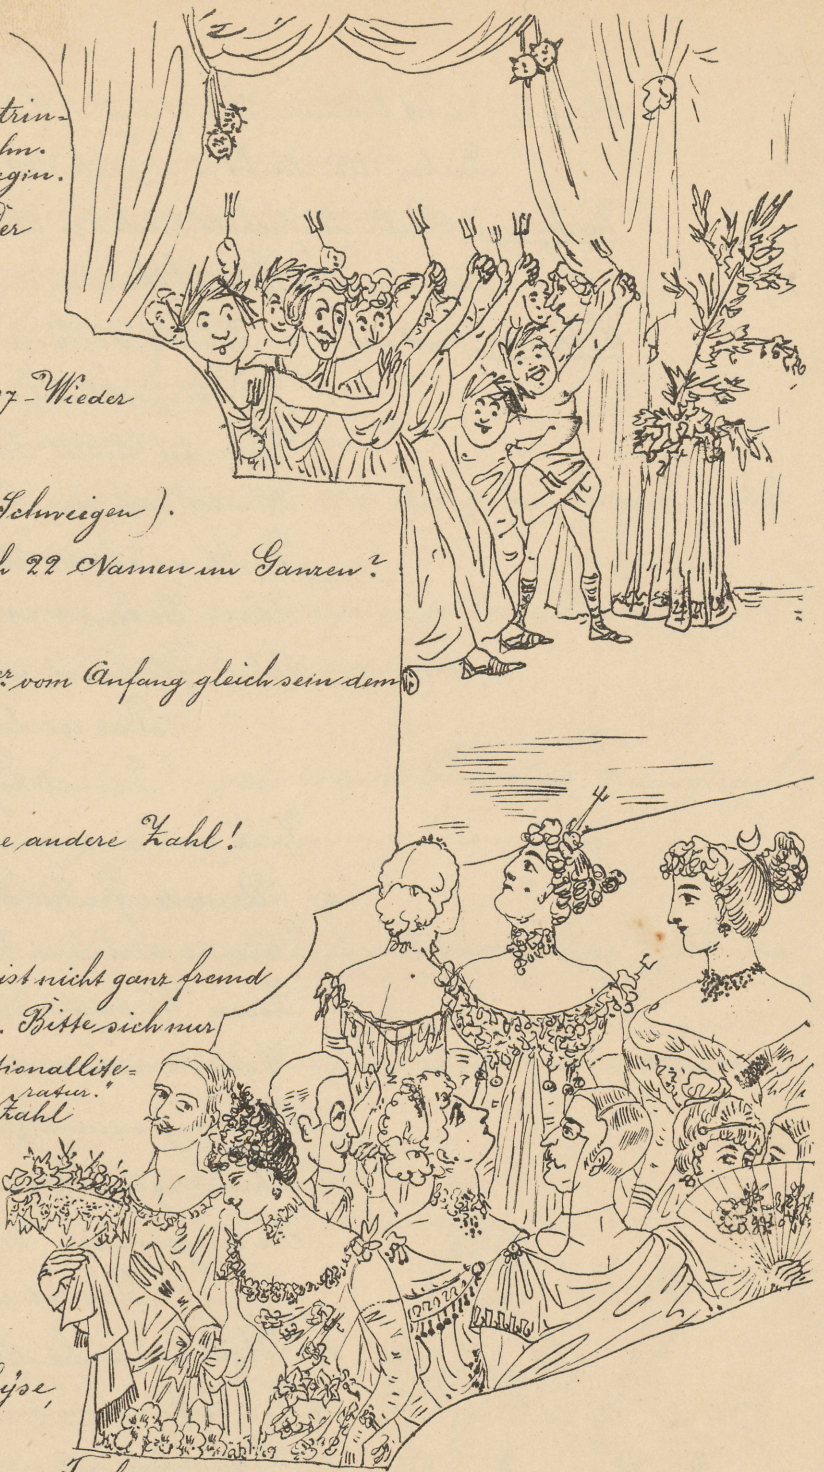 trin-
hn.
egin.
er
7-Wieder
Schweigen).
h 22 Namen im Ganzen?
vom Anfang gleich sein dem
e andere Zahl!
ist nicht ganz fremd
. Bitte sich nur
tionallite-
ratur."
Zahl
yse,